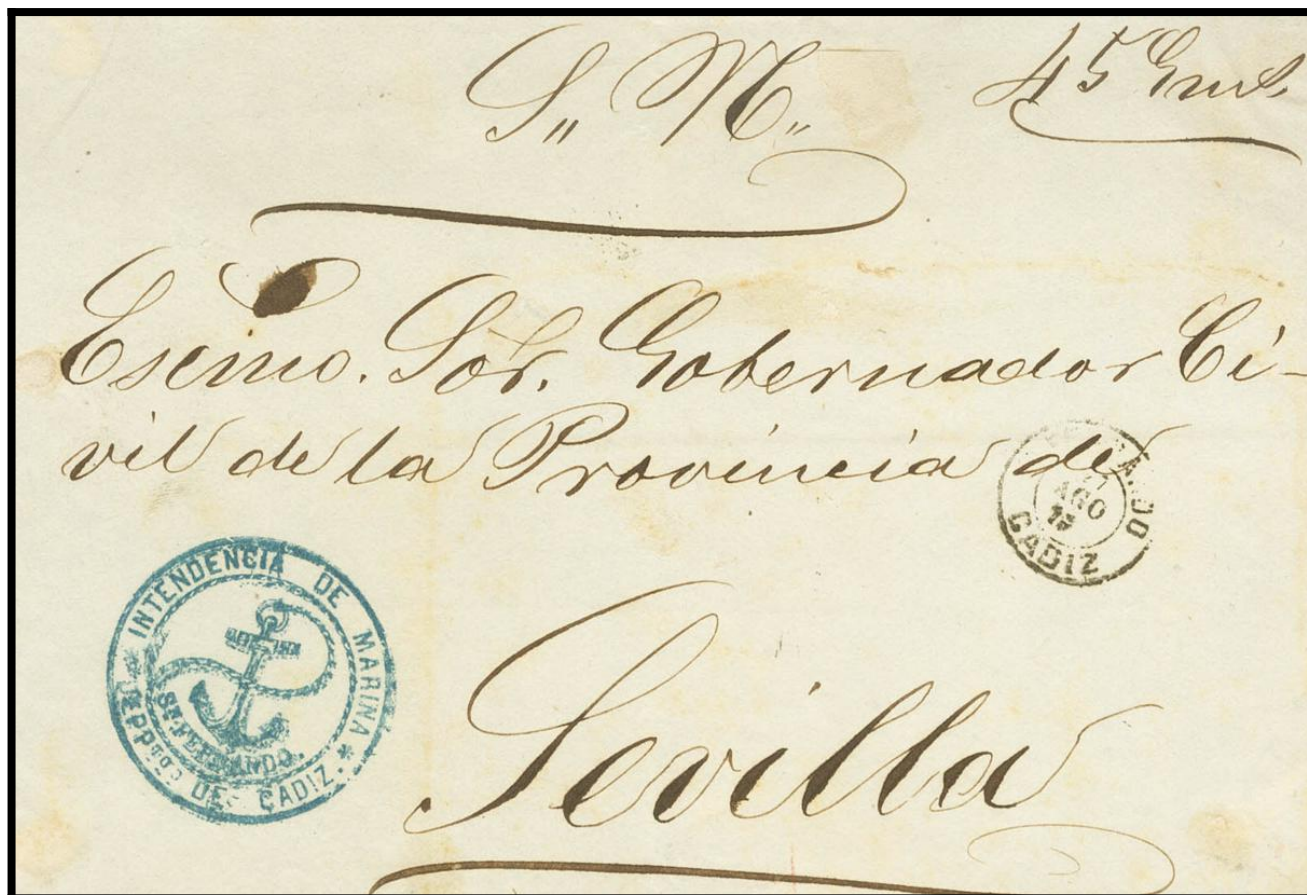 S,, M,,
45 Gms.
Escmo. Sör. Gobernador Ci-
vil de la Provincia de
Sevilla
INTENDENCIA DE MARINA
DEPPtoo DE CADIZ.
Sn. FERNANDO.
AGO
CADIZ